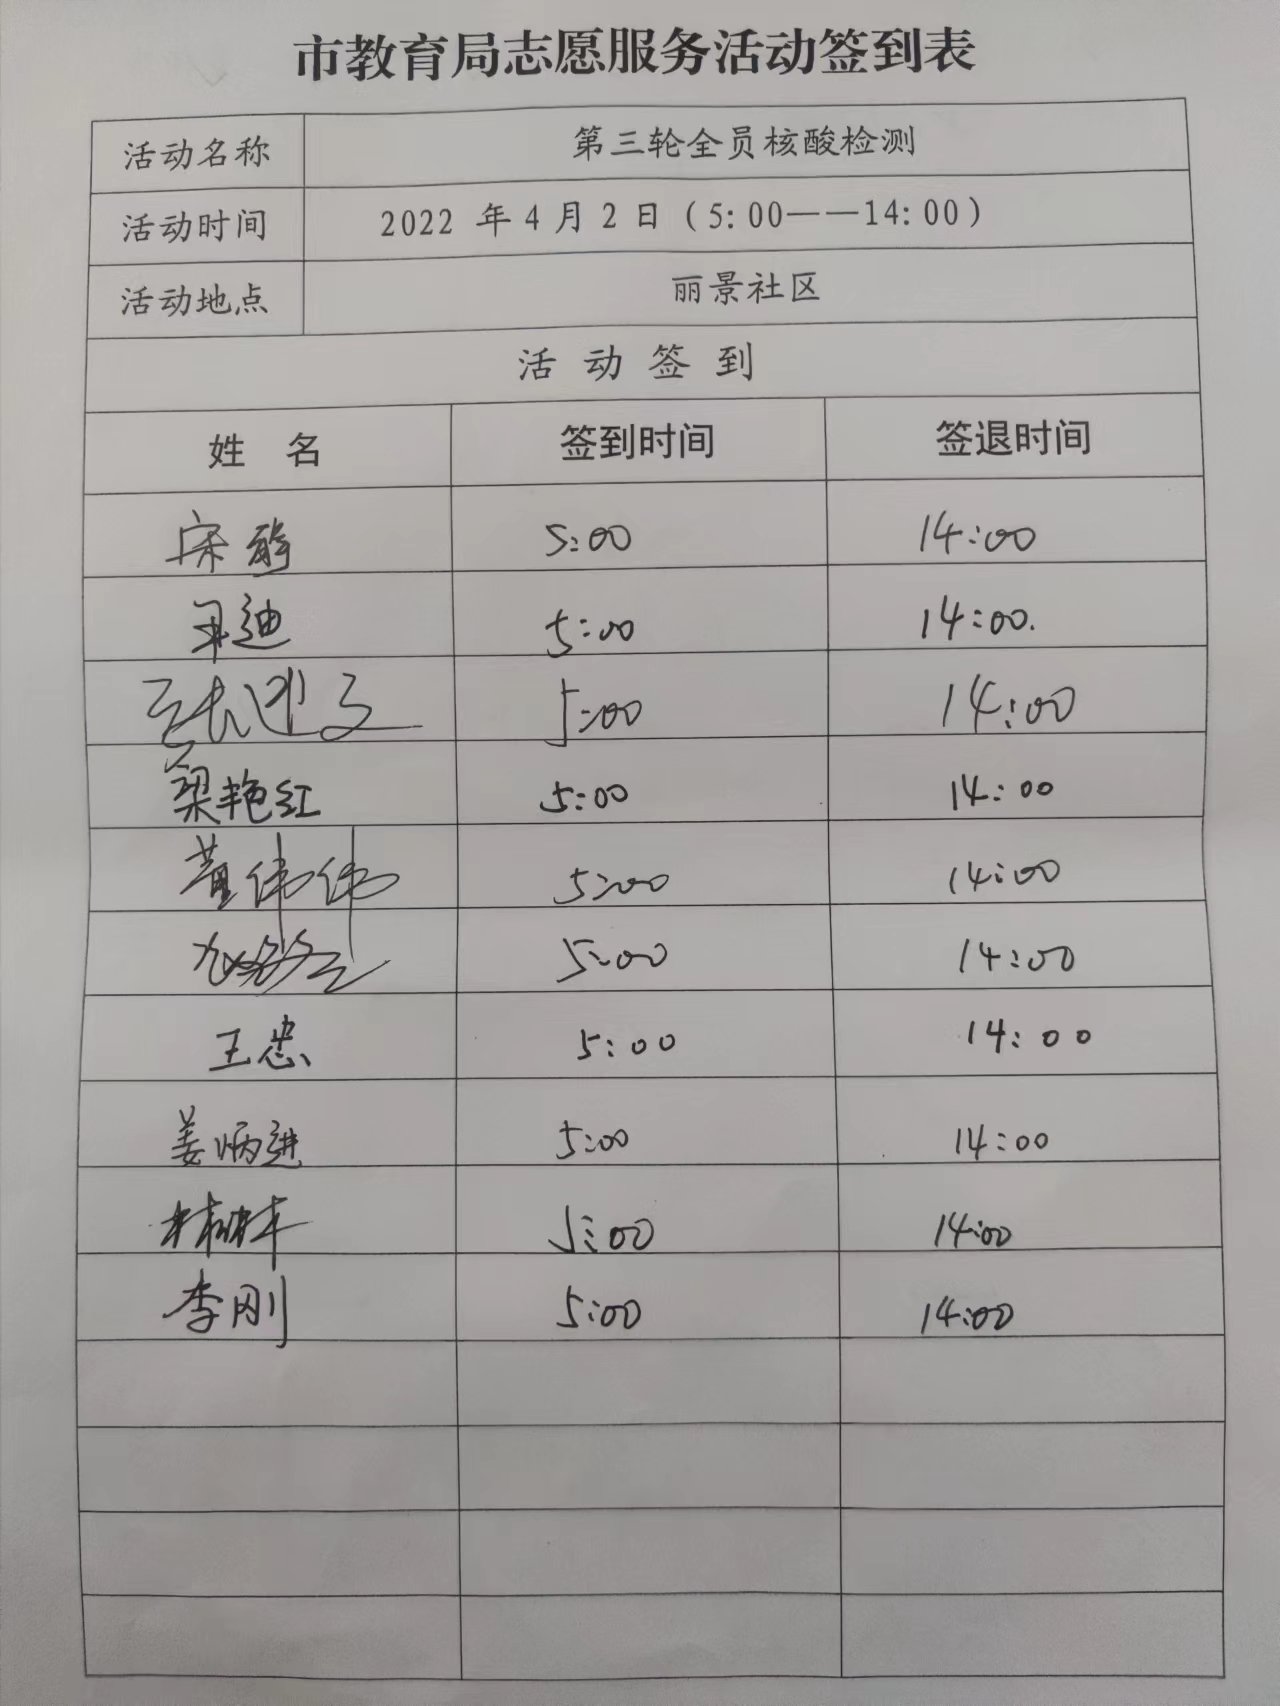 市教育局志愿服务活动签到表
活动名称 第三轮全员核酸检测
活动时间 2022 年 4 月 2 日（5：00——14：00）
活动地点 丽景社区
活 动 签 到
姓 名 签到时间 签退时间
宋 5:00 14:00
迪 5:00 14:00.
5:00 14:00
梁艳红 5:00 14:00
董伟伟 5:00 14:00
5:00 14:00
王忠 5:00 14:00
姜炳进 5:00 14:00
5:00 14:00
李刚 5:00 14:00